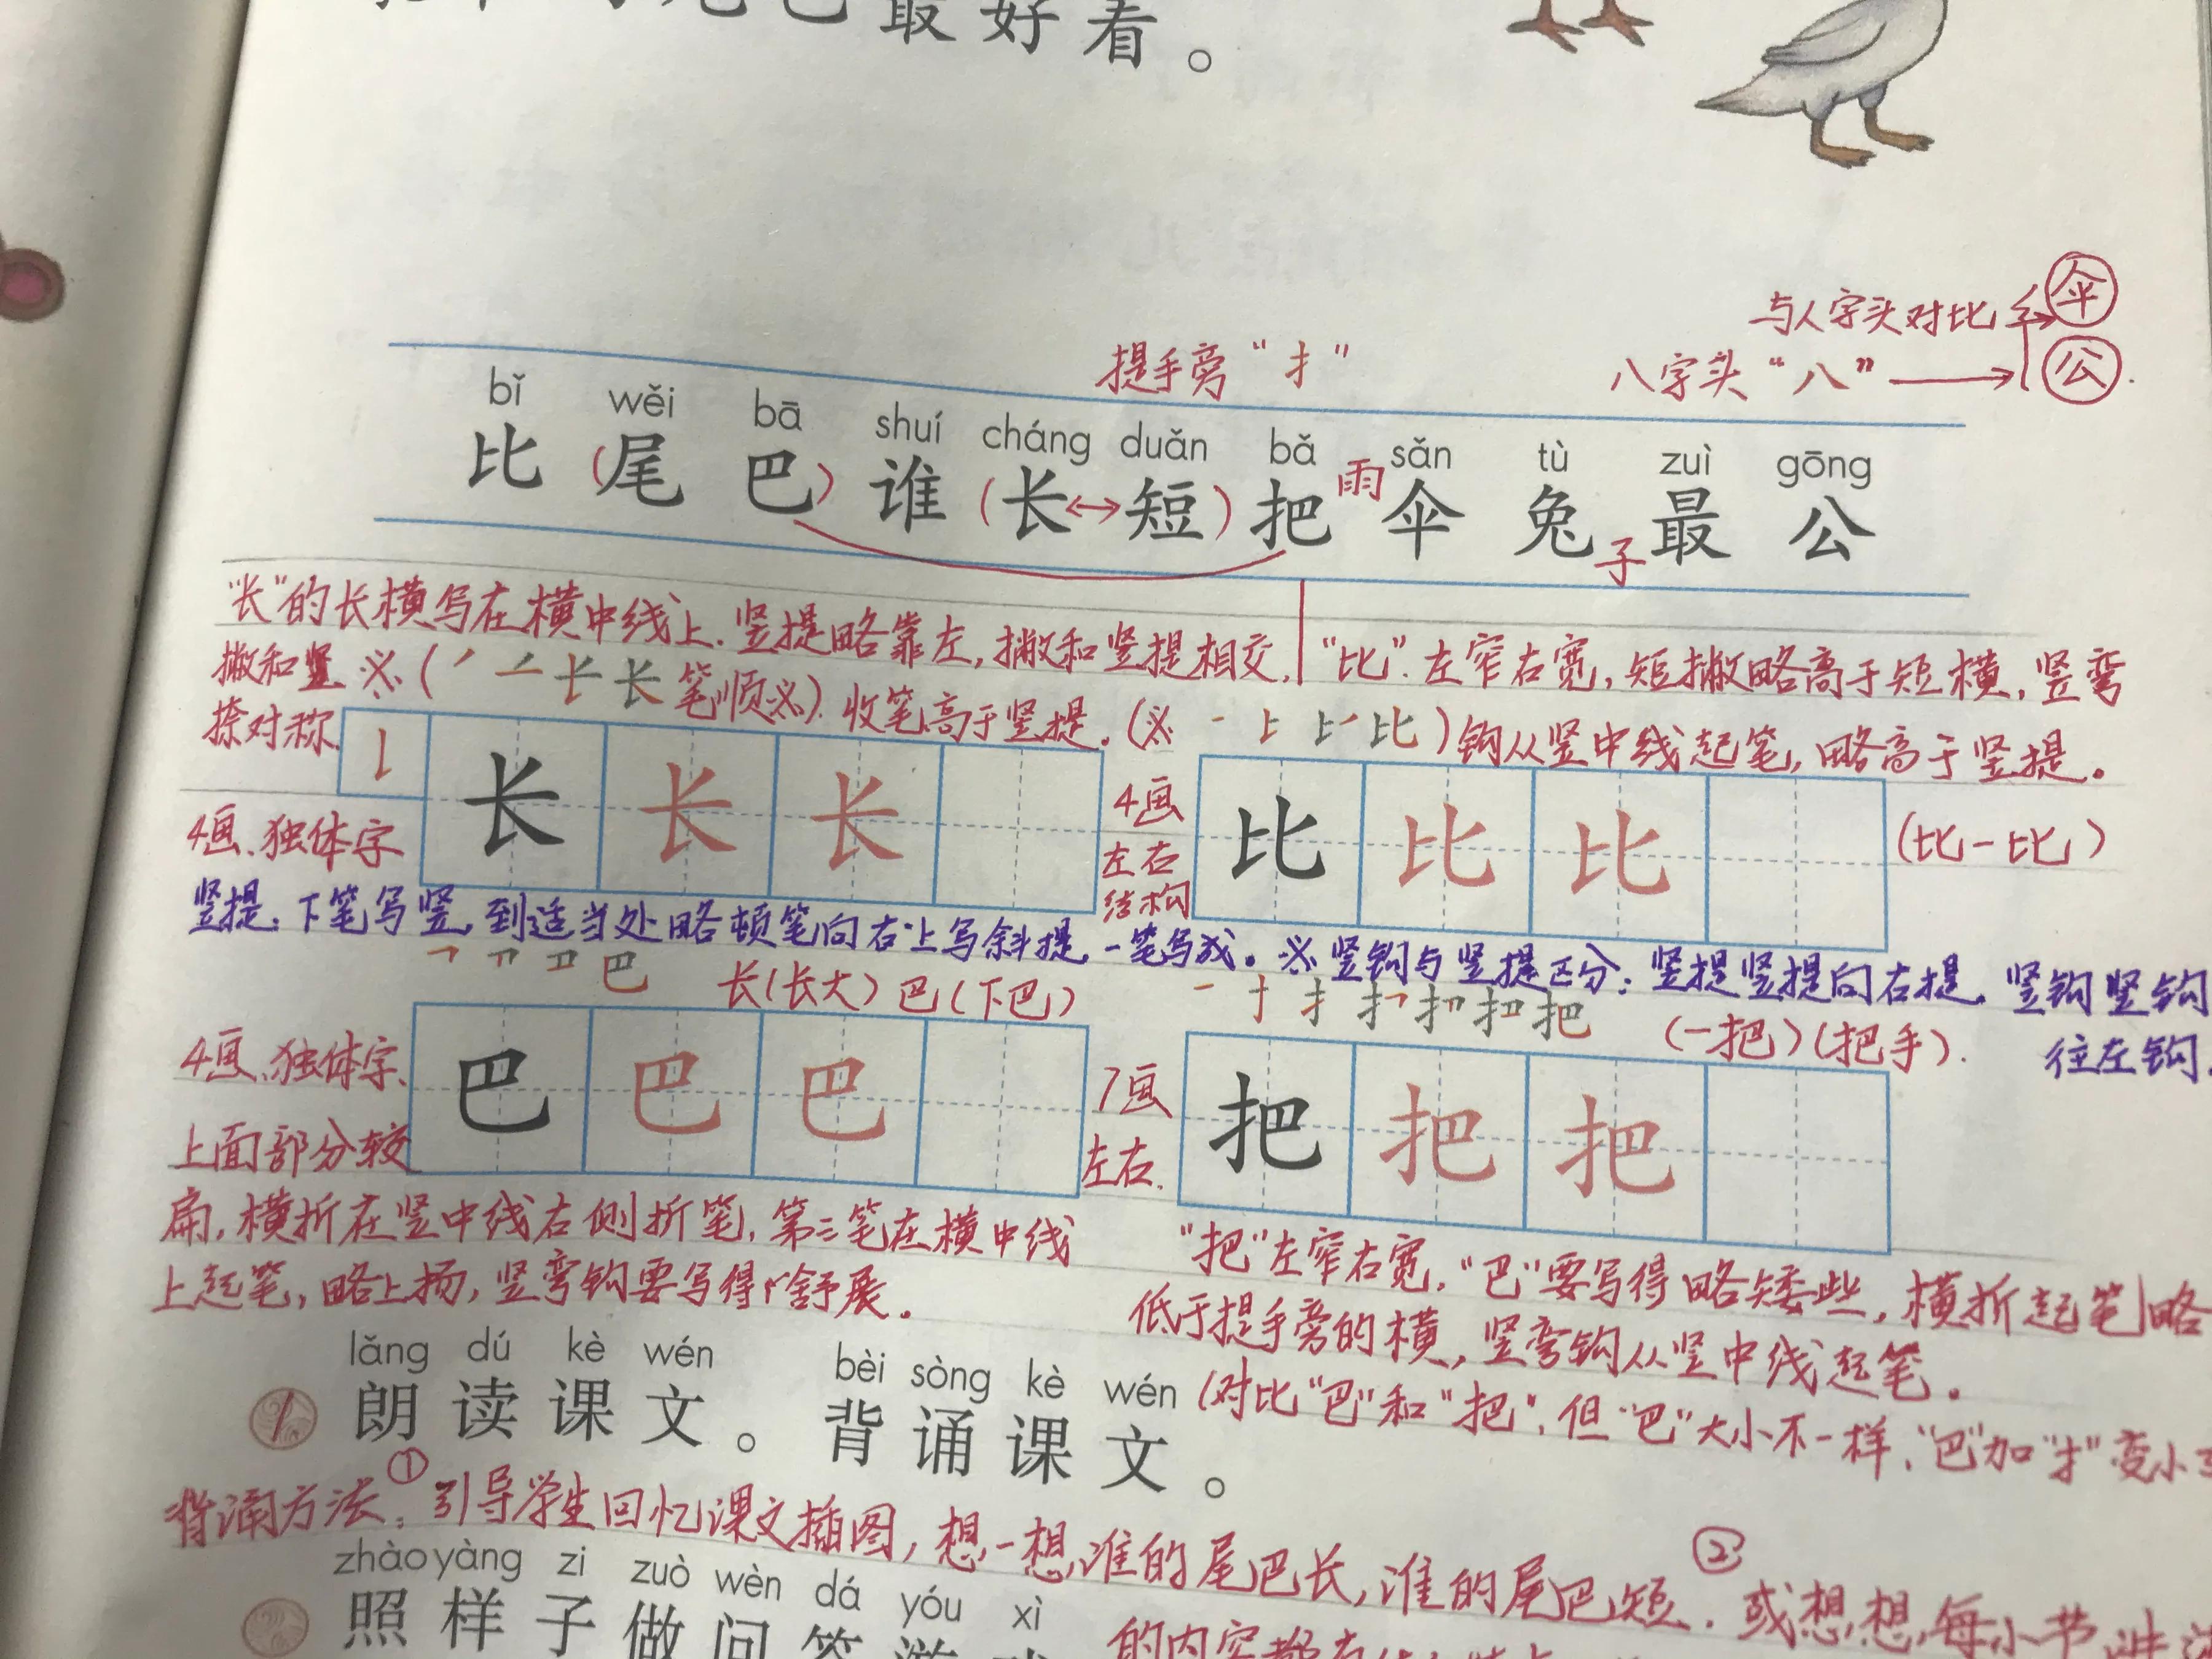 尾巴最好看。
与人字头对比 伞
提手旁“扌” 八字头“八” 公
bǐ wěi bā shuí cháng duǎn bǎ sǎn tù zuì gōng
比(尾巴)谁(长↔短)把雨伞兔子最公
“长”的长横写在横中线上.竖提略靠左,撇和竖提相交,
撇和竖 ※(笔顺※).收笔高于竖提.
捺对称.
“比”.左窄右宽,短撇略高于短横,竖弯
(※ 比)钩从竖中线起笔,略高于竖提。
长 长 长
4画.独体字
4画
左右
结构
比 比 比
(比一比)
竖提:下笔写竖,到适当处略顿笔向右上写斜提,一笔写成。※竖钩与竖提区分:竖提竖提向右提,竖钩竖钩
往左钩.
长(长大) 巴(下巴)
(一把)(把手).
巴 巴 巴
4画.独体字.
上面部分较
扁,横折在竖中线右侧折笔,第三笔在横中线
上起笔,略上扬,竖弯钩要写得舒展.
7画
左右.
把 把 把
“把”左窄右宽,“巴”要写得略矮些,横折起笔略
低于提手旁的横,竖弯钩从竖中线起笔.
(对比“巴”和“把”,但“巴”大小不一样,“巴”加“扌”变小
lǎng dú kè wén bèi sòng kè wén
朗读课文。背诵课文。
背诵方法:①引导学生回忆课文插图,想一想,谁的尾巴长,谁的尾巴短.②或想想,每小节
zhào yàng zi zuò wèn dá yóu xì
照样子做问答游戏